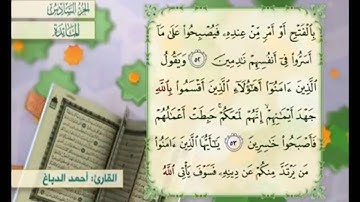 الجزء السادس
المائدة
بِٱلْفَتْحِ أَوْ أَمْرٍ مِّنْ عِندِهِۦ فَيُصْبِحُوا۟ عَلَىٰ مَآ
أَسَرُّوا۟ فِىٓ أَنفُسِهِمْ نَـٰدِمِينَ ٥٢ وَيَقُولُ
ٱلَّذِينَ ءَامَنُوٓا۟ أَهَـٰٓؤُلَآءِ ٱلَّذِينَ أَقْسَمُوا۟ بِٱللَّهِ
جَهْدَ أَيْمَـٰنِهِمْ إِنَّهُمْ لَمَعَكُمْ حَبِطَتْ أَعْمَـٰلُهُمْ
فَأَصْبَحُوا۟ خَـٰسِرِينَ ٥٣ يَـٰٓأَيُّهَا ٱلَّذِينَ ءَامَنُوا۟
مَن يَرْتَدَّ مِنكُمْ عَن دِينِهِۦ فَسَوْفَ يَأْتِى ٱللَّهُ
القارئ: أحمد الدباغ